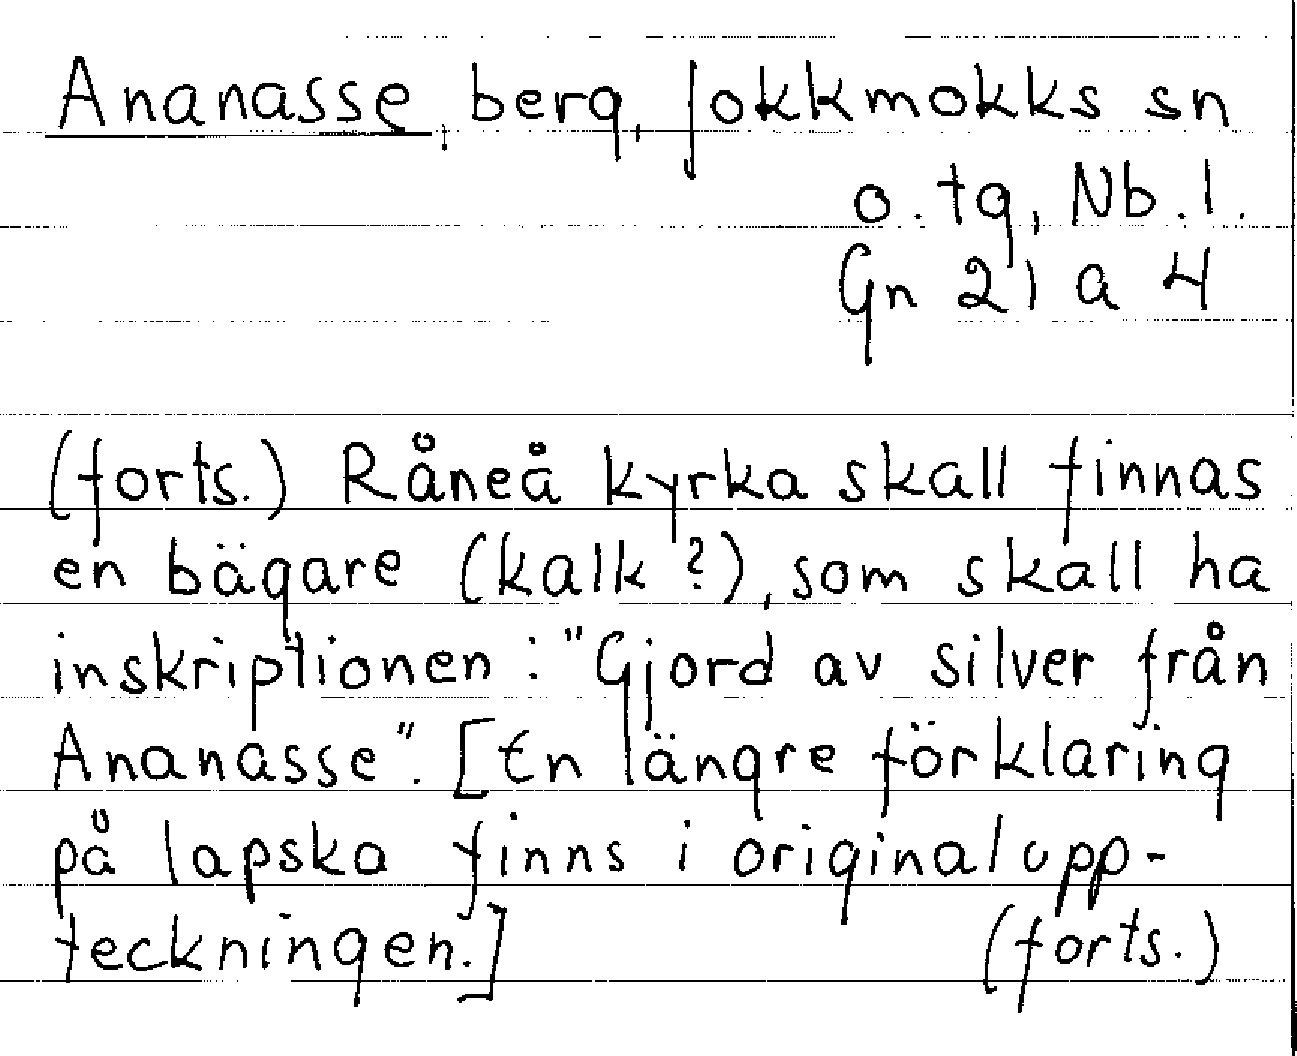 Ananasse, berg, Jokkmokks sn
o. tg, Nb. l.
Gn 21 a 4
(forts.) Råneå kyrka skall finnas
en bägare (kalk?), som skall ha
inskriptionen: "Gjord av silver från
Ananasse". [En längre förklaring
på lapska finns i originalupp-
teckningen.] (forts.)